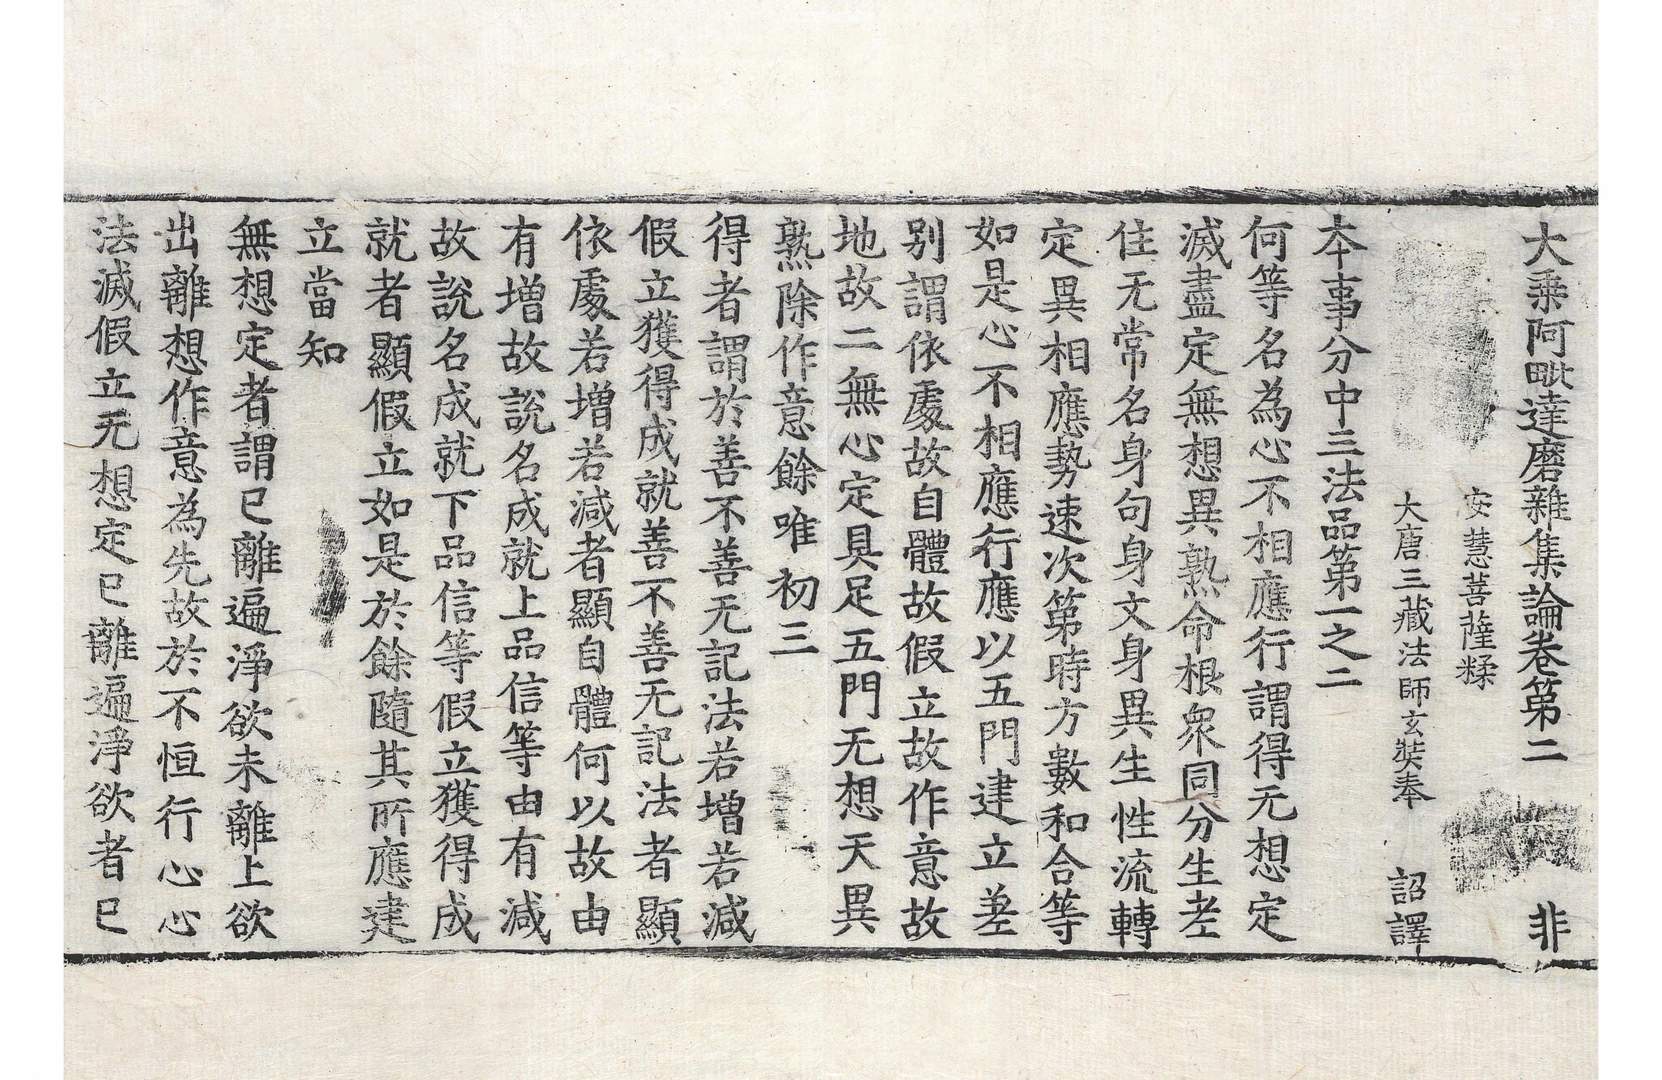 大乗阿毗達磨雜集論卷第二 非
安慧菩薩糅
大唐三藏法師玄奘奉 詔譯
本事分中三法品第一之二
何等名為心不相應行謂得无想定
滅盡定無想異熟命根衆同分生老
住无常名身句身文身異生性流轉
定異相應勢速次第時方數和合等
如是心不相應行應以五門建立差
别謂依處故自體故假立故作意故
地故二無心定具足五門无想天異
熟除作意餘唯初三
得者謂於善不善无記法若增若減
假立獲得成就善不善无記法者顯
依處若增若減者顯自體何以故由
有增故說名成就上品信等由有減
故說名成就下品信等假立獲得成
就者顯假立如是於餘隨其所應建
立當知
無想定者謂已離遍淨欲未離上欲
出離想作意為先故於不恒行心心
法滅假立无想定已離遍淨欲者已